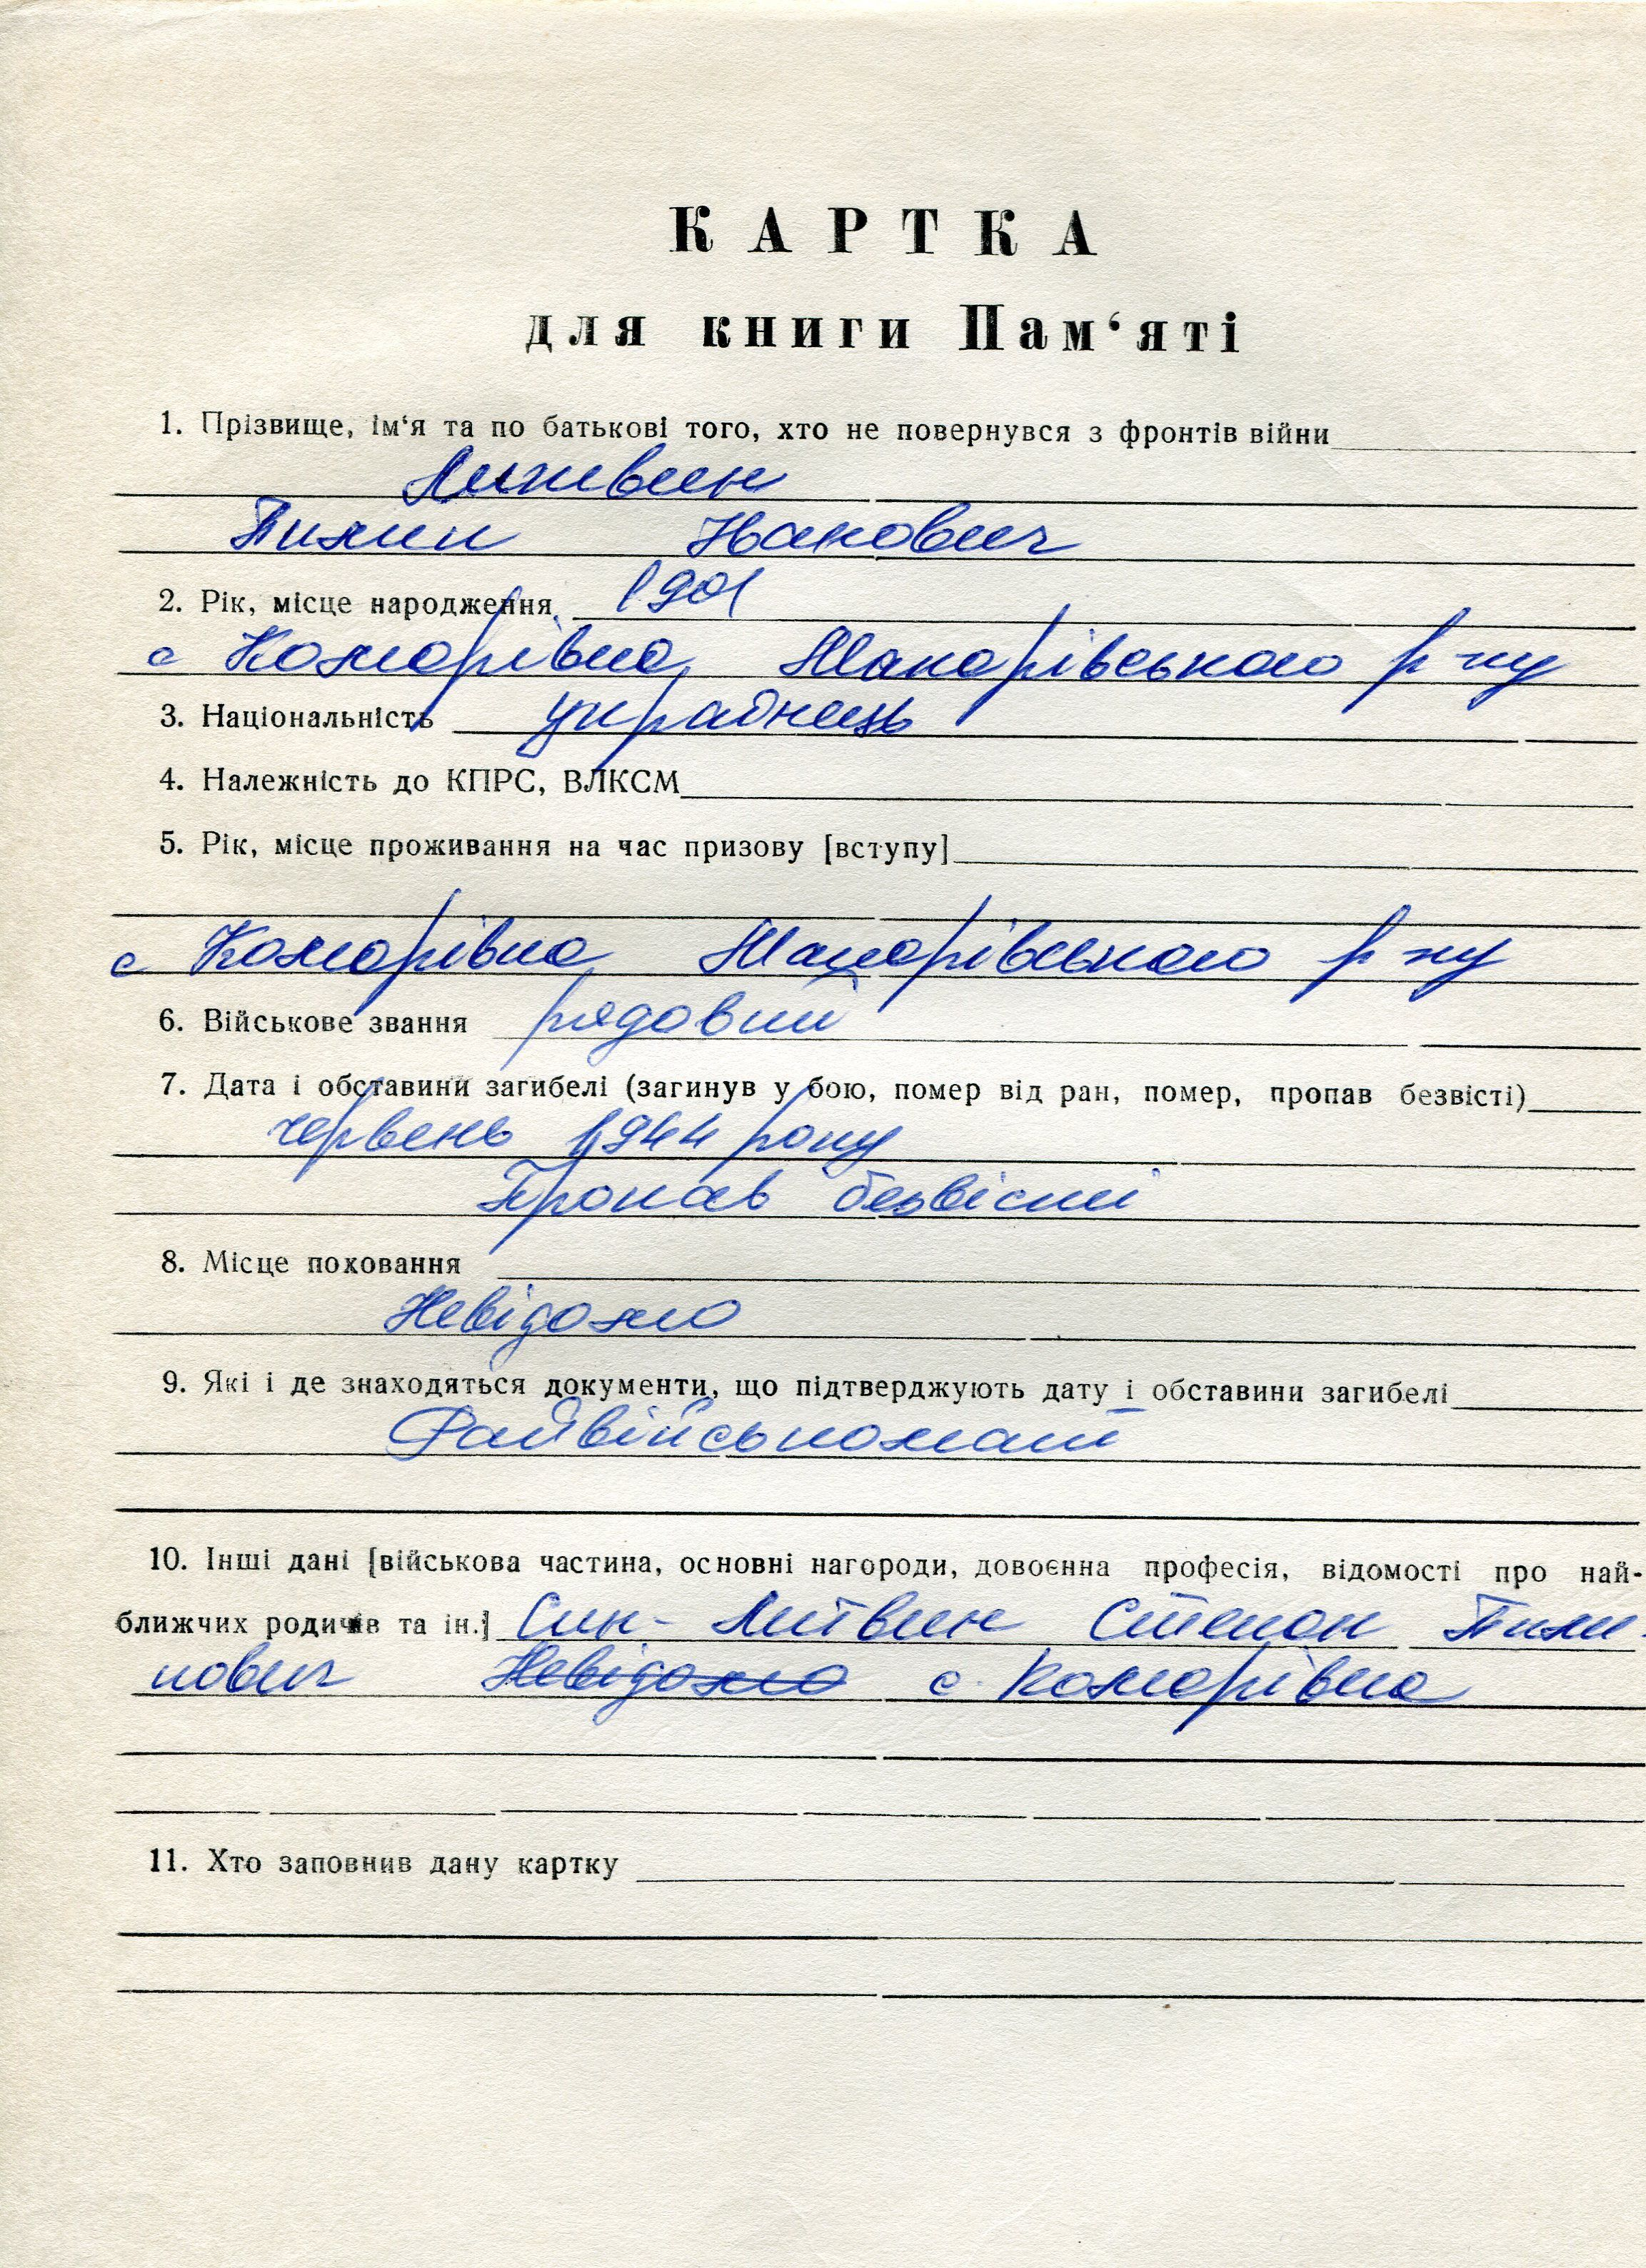 КАРТКА
для книги Пам‘яті
1. Прізвище, ім‘я та по батькові того, хто не повернувся з фронтів війни
Литвин
Пилип Іванович
2. Рік, місце народження 1901
с Комарівка, Макарівського р-ну
3. Національність українець
4. Належність до КПРС, ВЛКСМ
5. Рік, місце проживання на час призову [вступу]
с Комарівка Макарівського р-ну
6. Військове звання рядовий
7. Дата і обставини загибелі (загинув у бою, помер від ран, помер, пропав безвісті)
червень 1944 року
Пропав безвісти
8. Місце поховання
Невідомо
9. Які і де знаходяться документи, що підтверджують дату і обставини загибелі
Райвійськомат
10. Інші дані [військова частина, основні нагороди, довоєнна професія, відомості про най-
ближчих родичів та ін.] Син - Литвин Степон Пили-
пович Невідомо с. Комарівка
11. Хто заповнив дану картку